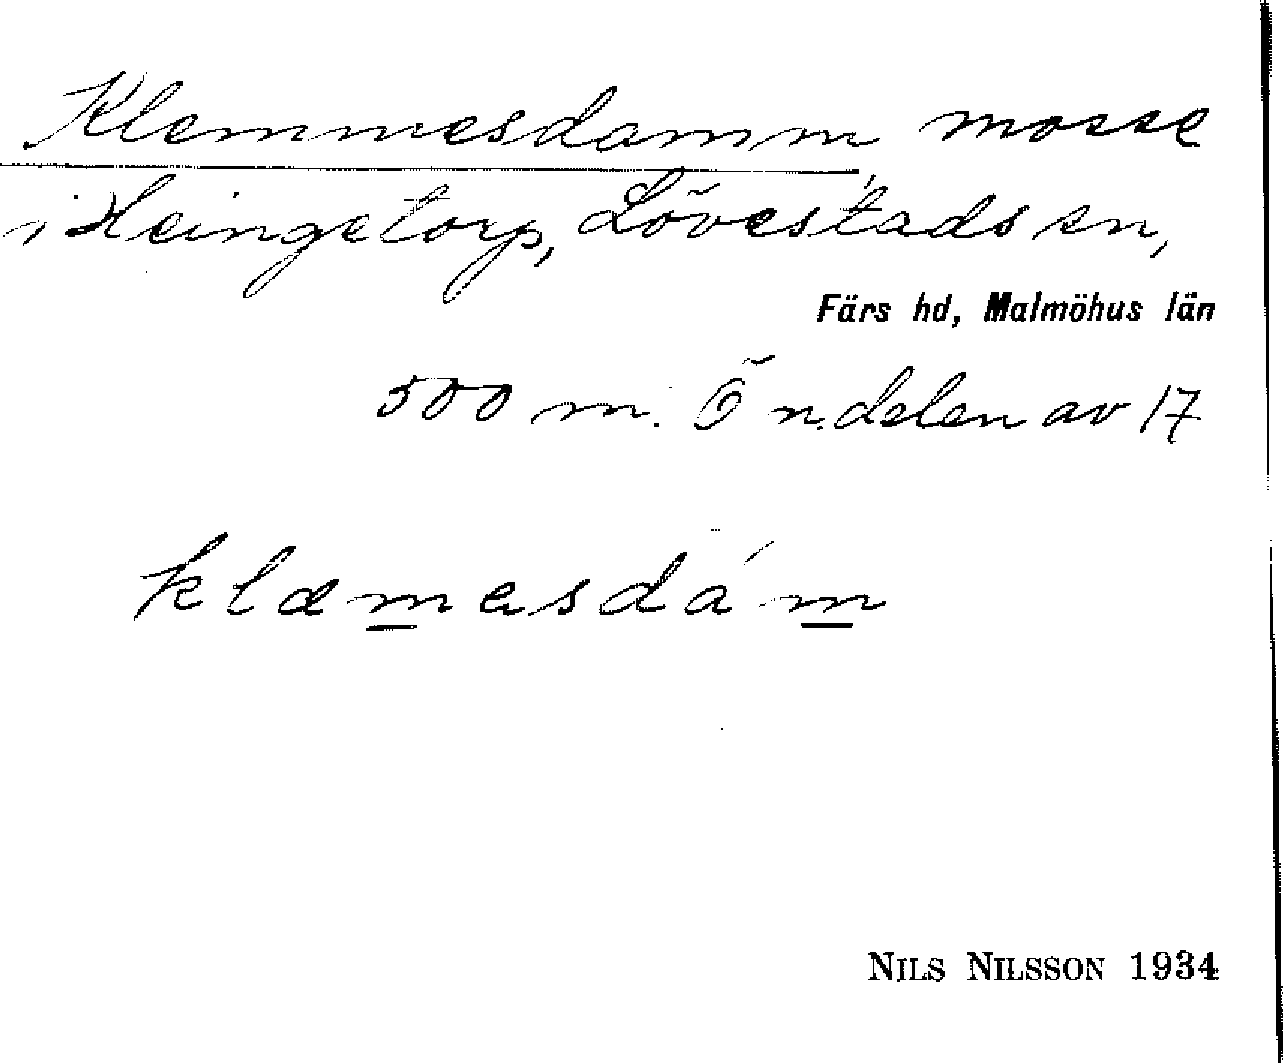 Klemmesdamm, mosse
i Heingetorp, Lövestads sn,
Färs hd, Malmöhus län
500 m. Ö n. delen av 17
klæmesdám
NILS NILSSON 1934